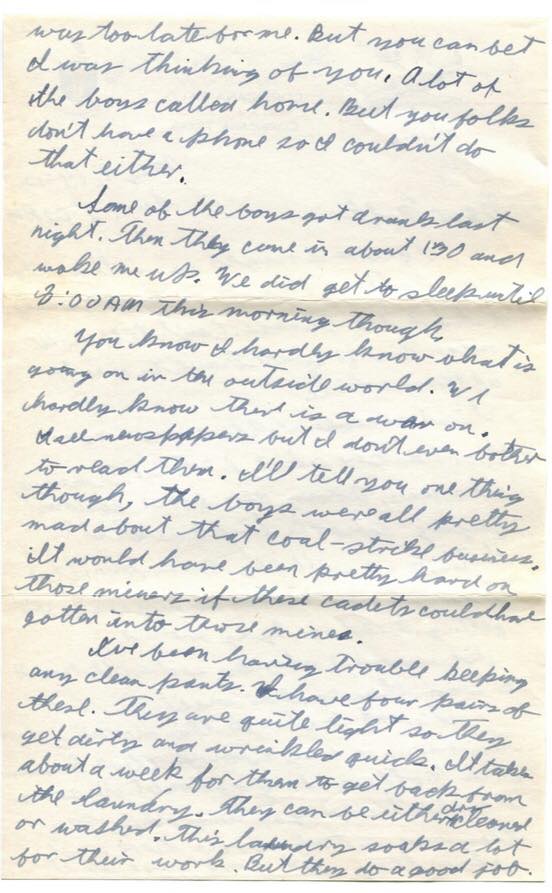 was too late for me. But you can bet
I was thinking of you. A lot of
the boys called home. But you folks
don't have a phone so I couldn't do
that either.
Some of the boys got drunk last
night. Then they come in about 130 and
woke me up. We did get to sleep until
8:00 AM this morning though.
You know I hardly know what is
going on in the outside world. We
hardly know there is a war on.
I see newspapers but I don't even bother
to read them. I'll tell you one thing
though, the boys were all pretty
mad about that coal-strike business.
It would have been pretty hard on
those miners if these cadets could have
gotten into those mines.
I've been having trouble keeping
any clean pants. I have four pairs of
these. They are quite light so they
get dirty and wrinkled quick. It takes
about a week for them to get back from
the laundry. They can be either dry cleaned
or washed. This laundry soaks a lot
for their work. But they do a good job.